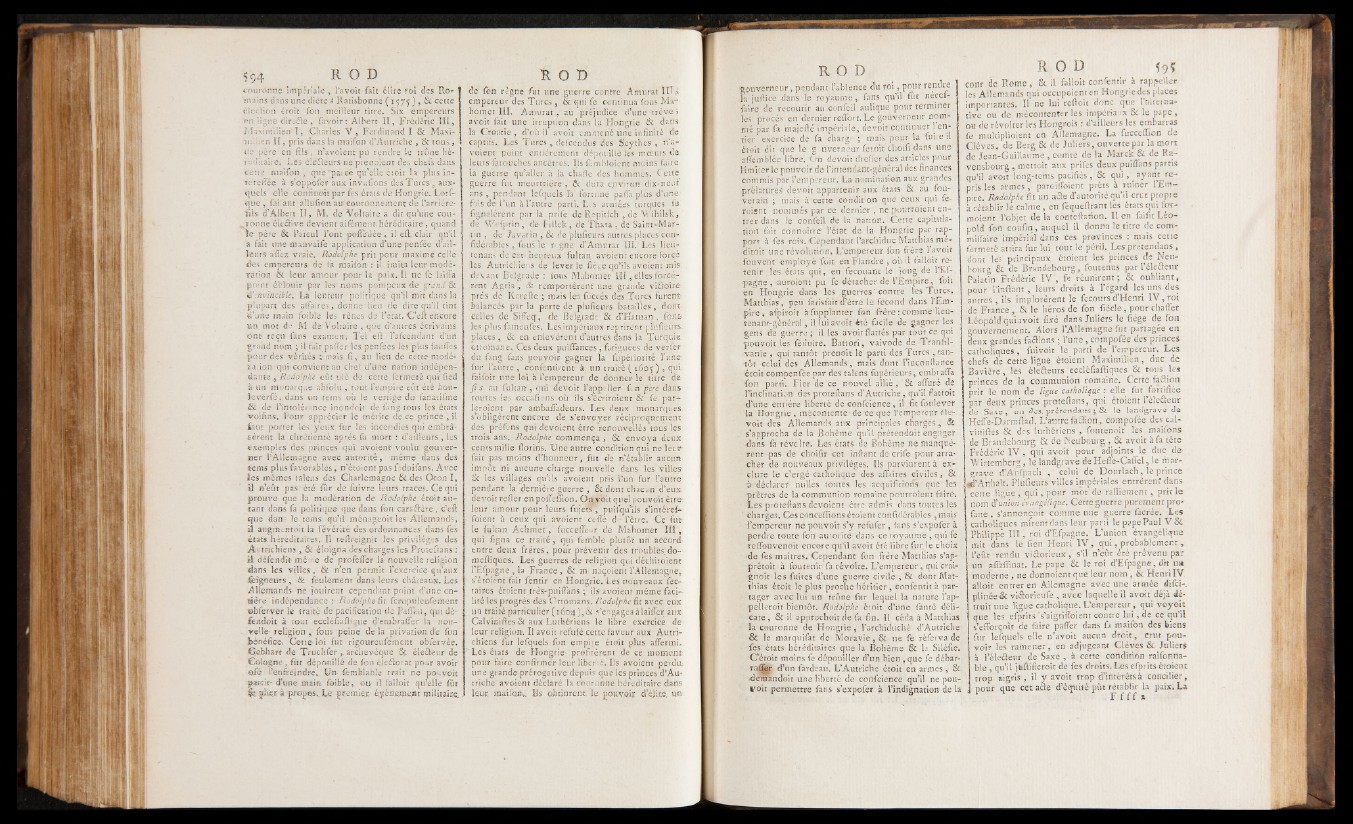 594 ROD
couronne impériale, l'avoit fait élire roi des Ro-
mains dans une diète à Ratisbonne (1575), & cette
élection étoit son meilleur titre. Six empereurs
en ligne directe, savoir : Albert II, Frédéric III,
Maximilien I, Charles V, Ferdinand I & Maxi-
milien II, pris dans la maison d'Autriche, & tous,
de père en fils, n'avoient pu rendre le trône hé-
réditaire. Les électeurs ne prenoient des chefs dans
cette maison, que parce qu'elle étoit la plus in-
téressée à s'opposer aux invasions des Turcs, aux-
quels elle confinoit par ses états de Hongrie. Lors-
que, faisant allusion au couronnement de l'arrière-
fils d'Albert II, M. de Voltaire a dit qu'une cou-
ronne élective devient aisément héréditaire, quand
le père & l'aïeul l'ont possédée, il est clair qu'il
a fait une mauvaise application d'une pensée d'ail-
leurs assez vraie. Rodolphe prit pour maxime celle
des empereurs de sa maison : il imita leur modé-
ration & leur amour pour la paix. Il ne se laissa
point éblouir par les noms pompeux de grand &
d'invincible. La lenteur politique qu'il mit dans la
plupart des affaires, donne lieu de dire qu'il tint
d'une main foible les rênes de l'état. C'est encore
un mot de M. de Voltaire, que d'autres écrivains
ont reçu sans examen. Tel est l'ascendant d'un
grand nom ; il fait passer les pensées les plus fausses
pour des vérités : mais si, au lieu de cette modé-
ration qui convient au chef d'une nation indépen-
dante, Rodolphe eût usé de cette fermeté qui sied
à un monarque absolu, tout l'empire eût été bou-
leversé, dans un tems où le vertige du fanatisme
& de l'intolérance inondoit de sang tous les états
voisins. Pour apprécier le mérite de ce prince, il
faut porter les yeux sur les incendies qui embrâ-
sèrent la chrétienté après sa mort : d'ailleurs, les
exemples des princes qui avoient voulu gouver-
ner l'Allemagne avec autorité, même dans des
tems plus favorables, n'étoient pas séduisans. Avec
les mêmes talens des Charlemagne & des Oton I,
il n'eût pas été sûr de suivre leurs traces. Ce qui
prouve que la modération de Rodolphe étoit au-
tant dans sa politique que dans son caractère, c'est
que dans le tems qu'il ménageoit les Allemands,
il augmentoit la sévérité des ordonnances dans ses
états héréditaires. Il restreignit les privilèges des
Autrichiens, & éloigna des charges les Protestans :
il défendit même de professer la nouvelle religion
dans les villes, & n'en permit l'exercice qu'aux
seigneurs, & seulement dans leurs châteaux. Les
Allemands ne jouirent cependant point d'une en-
tière indépendance : Rodolphe fit scrupuleusement
observer le traité de pacification de Passau, qui dé-
fendoit à tout ecclésiastique d'embrasser la nou-
velle religion, sous peine de la privation de son
bénéfice. Cette loi fut rigoureusement observée.
Gebhart de Truchses, archevêque & électeur de
Cologne, fut dépouillé de son électorat pour avoir
osé l'enfreindre. Un semblable trait ne pouvoit
partir d'une main foible, ou il falloit qu'elle sût
se plier à propos. Le premier évènement militaire
ROD
de son règne fut une guerre contre Amurat III,
empereur des Turcs, & qui se continua sous Ma-
homet III. Amurat, au préjudice d'une trêve,
avoit fait une irruption dans la Hongrie & dans
la Croatie, d'où il avoit emmené une infinité de
captifs. Les Turcs, descendus des Scythes, n'a-
voient point entièrement dépouillé les mœurs de
leurs farouches ancêtres. Ils sembloient moins faire
la guerre qu'aller à la chasse des hommes. Cette
guerre fut meurtrière, & dura environ dix-neuf
ans, pendant lesquels la fortune passa plus d'une
fois de l'un à l'autre parti. Les armées turques se
signalèrent par la prise de Repitsch, de Wihilsk,
de Wesprin, de Fillek, de Thata, de Saint-Mar-
tin, de Pavarin, & de plusieurs autres places con-
sidérables, sous le règne d'Amurat III. Les lieu-
tenans de cet heureux sultan avoient encore forcé
les Autrichiens de lever le siége qu'ils avoient mis
devant Belgrade : sous Mahomet III, elles forcè-
rent Agria, & remportèrent une grande victoire
près de Kereste ; mais les succès des Turcs furent
balancés par la perte de plusieurs batailles, dont
celles de Sisseq, de Belgrade & d'Hatuan, sont
les plus fameuses. Les impériaux reprirent plusieurs
places, & en enlevèrent d'autres dans la Turquie
ottomane. Ces deux puissances, fatiguées de verser
du sang sans pouvoir gagner la supériorité l'une
sur l'autre, consentirent à un traité (1605), qui
faisoit une loi à l'empereur de donner le titre de
fils au sultan, qui devoit l'appeller son père dans
toutes les occasions où ils s'écriroient & se par-
leroient par ambassadeurs. Les deux monarques
s'obligèrent encore de s'envoyer réciproquement
des présens qui devoient être renouvellés tous les
trois ans. Rodolphe commença, & envoya deux
cents mille florins. Une autre condition qui ne leur
fait pas moins d'honneur, fut de n'établir aucun
impôt ni aucune charge nouvelle dans les villes
& les villages qu'ils avoient pris l'un sur l'autre
pendant la dernière guerre, & dont chacun d'eux
devoit rester en possession. On voit quel pouvoit être
leur amour pour leurs sujets, puisqu'ils s'intéres-
soient à ceux qui avoient cessé de l'être. Ce fut
le sultan Achmet, successeur de Mahomet III,
qui signa ce traité, qui semble plutôt un accord
entre deux frères, pour prévenir des troubles do-
mestiques. Les guerres de religion qui déchiroient
l'Espagne, la France, & menaçoient l'Allemagne,
s'étoient fait sentir en Hongrie. Les nouveaux sec-
taires étoient très-puissans ; ils avoient même faci-
lité les progrès des Ottomans. Rodolphe fit avec eux
un traité particulier (1604), & s'engagea à laisser aux
Calvinistes & aux Luthériens le libre exercice de
leur religion. Il avoit refusé cette faveur aux Autri-
chiens sur lesquels son empire étoit plus affermi.
Les états de Hongrie profitèrent de ce moment
pour faire confirmer leur liberté. Ils avoient perdu
une grande prérogative depuis que les princes d'Au-
triche avoient déclaré la couronne héréditaire dans
leur maison. Ils obtinrent le pouvoir d'élire un
ROD
gouverneur, pendant l'absence du roi, pour rendre
la justice dans le royaume, sans qu'il fût néces-
saire de recourir au conseil aulique pour terminer
les procès en dernier ressort. Le gouverneur nom-
mé par sa majesté impériale, devoit continuer l'en-
tier exercice de sa charge ; mais pour la suite il
étoit dit que le gouverneur seroit choisi dans une
assemblée libre. On devoit dresser des articles pour
limiter le pouvoir de l'intendant-général des finances
commis par l'empereur. La nomination aux grandes
prélatures devoit appartenir aux états & au sou-
verain ; mais à cette condition que ceux qui se-
roient nommés par ce dernier, ne pourroient en-
trer dans le conseil de la nation. Cette capitula-
tion fait connoître l'état de la Hongrie par rap-
port à ses rois. Cependant l'archiduc Matthias mé-
ditoit une révolution. L'empereur son frère l'avoit
souvent employé soit en Flandre, où il falloit re-
tenir les états qui, en secouant le joug de l'Es-
pagne, auroient pu se détacher de l'Empire, soit
en Hongrie dans les guerres contre les Turcs.
Matthias, peu satisfait d'être le second dans l'Em-
pire, aspiroit à supplanter son frère : comme lieu-
tenant-général, il lui avoit été facile de gagner les
gens de guerre ; il les avoit flattés par tout ce qui
pouvoit les séduire. Battori, vaivode de Transil-
vanie, qui tantôt prenoit le parti des Turcs, tan-
tôt celui des Allemands, mais dont l'inconstance
étoit compensée par des talens supérieurs, embrassa
son parti. Fier de ce nouvel allié, & assuré de
l'inclination des protestans d'Autriche, qu'il flattoit
d'une entière liberté de conscience, il fit soulever
la Hongrie, mécontente de ce que l'empereur éle-
voit des Allemands aux principales charges, &
s'approcha de la Bohême qu'il prétendoit engager
dans sa révolte. Les états de Bohême ne manquè-
rent pas de choisir cet instant de crise pour arra-
cher de nouveaux privilèges. Ils parvinrent à ex-
clure le clergé catholique des affaires civiles, &
à déclarer nulles toutes les acquisitions que les
prêtres de la communion romaine pourroient faire.
Les protestans devoient être admis dans toutes les
charges. Ces concessions étoient considérables, mais
l'empereur ne pouvoit s'y refuser, sans s'exposer à
perdre toute son autorité dans ce royaume, qui se
ressouvenoit encore qu'il avoit été libre sur le choix
de ses maîtres. Cependant son frère Matthias s'ap-
prêtoit à soutenir sa révolte. L'empereur, qui crai-
gnoit les suites d'une guerre civile, & dont Mat-
thias étoit le plus proche héritier, consentit à par-
tager avec lui un trône sur lequel la nature l'ap-
pelleroit bientôt. Rodolphe étoit d'une santé déli-
cate, & il approchoit de sa fin. Il céda à Matthias
la couronne de Hongrie, l'archiduché d'Autriche
& le marquisat de Moravie, & ne se réserva de
ses états héréditaires que la Bohême & la Silésie.
C'étoit moins se dépouiller d'un bien, que se débar-
rasser d'un fardeau. L'Autriche étoit en armes, &
demandoit une liberté de conscience qu'il ne pou-
voit permettre sans s'exposer à l'indignation de la
ROD 595
cour de Rome, & il falloit consentir à rappeller
les Allemands qui occupoient en Hongrie des places
importantes. Il ne lui restoit donc que l'alterna-
tive ou de mécontenter les impériaux & le pape,
ou de révolter les Hongrois : d'ailleurs les embarras
se multiplioient en Allemagne. La succession de
Clèves, de Berg & de Juliers, ouverte par la mort
de Jean-Guillaume, comte de la Marck & de Ra-
vensbourg, mettoit aux prises deux puissans partis
qu'il avoit long-tems pacifiés, & qui, ayant re-
pris les armes, paroissoient prêts à ruiner l'Em-
pire. Rodolphe fit un acte d'autorité qu'il crut propre
à rétablir le calme, en séquestrant les états qui for-
moient l'objet de la contestation. Il en saisit Léo-
pold son cousin, auquel il donna le titre de com-
missaire impérial dans ces provinces : mais cette
fermeté attira sur lui tout le péril. Les prétendans,
dont les principaux étoient les princes de Neu-
bourg & de Brandebourg, soutenus par l'électeur
Palatin Frédéric IV, se réunirent ; & oubliant,
pour l'instant, leurs droits à l'égard les uns des
autres, ils implorèrent le secours d'Henri IV, roi
de France, & le héros de son siècle, pour chasser
Léopold qui avoit fixé dans Juliers le siége de son
gouvernement. Alors l'Allemagne fut partagée en
deux grandes factions : l'une, composée des princes
catholiques, suivoit le parti de l'empereur. Les
chefs de cette ligue étoient Maximilien, duc de
Bavière, les électeurs ecclésiastiques & tous les
princes de la communion romaine. Cette faction
prit le nom de ligue catholique : elle fut fortifiée
par deux princes protestans, qui étoient l'électeur
de Saxe, un des prétendans, & le landgrave de
Hesse-Darmstad. L'autre faction, composée des cal-
vinistes & des luthériens, soutenoit les maisons
de Brandebourg & de Neubourg, & avoit à sa tête
Frédéric IV, qui avoit pour adjoints le duc de
Wirtemberg, le landgrave de Hesse-Cassel, le mar-
grave d'Anspach, celui de Dourlach, le prince
d'Anhalt. Plusieurs villes impériales entrèrent dans
cette ligue, qui, pour mot de ralliement, prit le
nom d'union évangélique. Cette guerre purement pro-
fane, s'annonçoit comme une guerre sacrée. Les
catholiques mirent dans leur parti le pape Paul V &
Philippe III, roi d'Espagne. L'union évangélique
mit dans le sien Henri IV, qui, probablement,
l'eût rendu victorieux, s'il n'eût été prévenu par
un assassinat. Le pape & le roi d'Espagne, dit un
moderne, ne donnoient que leur nom, & Henri IV
alloit entrer en Allemagne avec une armée disci-
plinée & victorieuse, avec laquelle il avoit déjà dé-
truit une ligue catholique. L'empereur, qui voyoit
que les esprits s'aigrissoient contre lui, de ce qu'il
s'efforçoit de faire passer dans sa maison des biens
sur lesquels elle n'avoit aucun droit, crut pou-
voir les ramener, en adjugeant Clèves & Juliers
à l'électeur de Saxe, à cette condition raisonna-
ble, qu'il justifieroit de ses droits. Les esprits étoient
trop aigris, il y avoit trop d'intérêts à concilier,
pour que cet acte d'équité pût rétablir la paix. La
Ffff 2